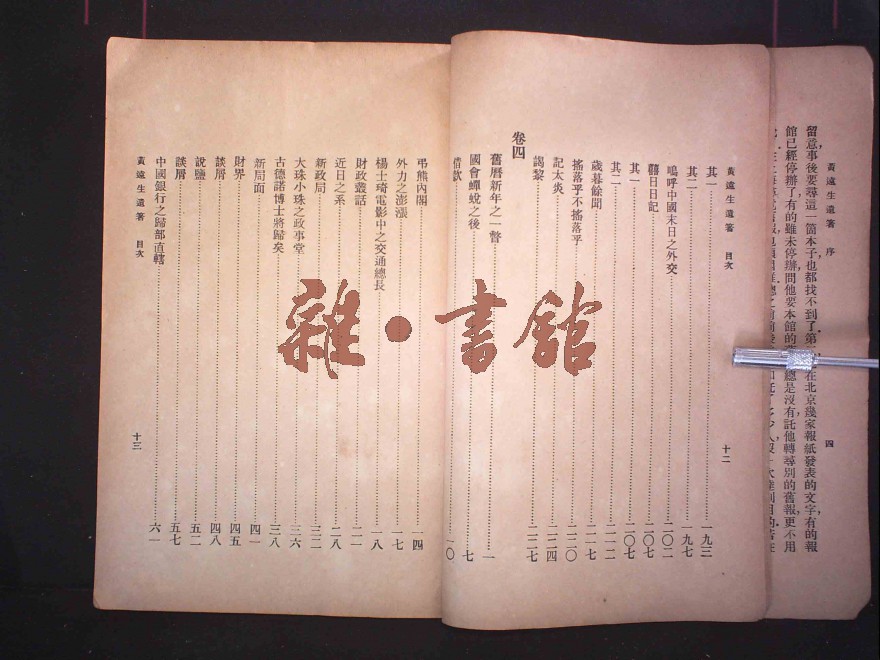 黃遠生遺著 序 四
留意事後要尋這一箇本子也都找不到了第
在北京幾家報紙發表的文字有的報
館已經停辦了有的雖未停辦問他要本館的
總是沒有託他轉尋別的舊報更不用
黃遠生遺著 目次 十二
其一 一九三
其二 一九七
嗚呼中國末日之外交 二〇二
囍日日記 二〇七
其一 二〇七
其二 二一二
歲暮餘聞 二一七
搖落乎不搖落乎 二二〇
記太炎 二二四
謁黎 二二七
卷四
舊曆新年之一瞥 一
國會蟬蛻之後 七
借款 一〇
弔熊內閣 一四
外力之澎漲 一七
楊士琦電影中之交通總長 一八
財政叢話 二二
近日之系 二八
新政局 三二
大珠小珠之政事堂 三六
古德諾博士將歸矣 三八
新局面 四一
財界 四五
談屑 四八
說鹽 五二
談屑 五七
中國銀行之歸部直轄 六一
黃遠生遺著 目次 十三
雜·書館